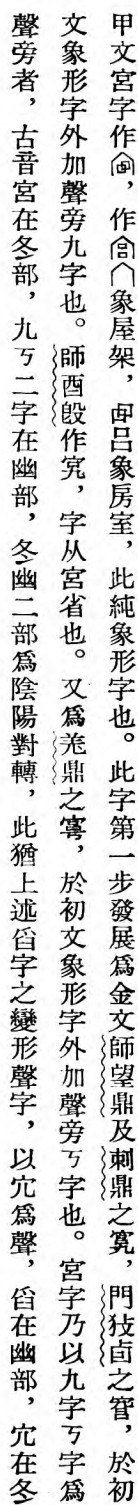 甲文宮字作，作，宀象屋架，吕象房室，此純象形字也。此字第一步發展爲金文師望鼎及刺鼎之䆪，門㚔卣之䆪，於初
文象形字外加聲旁九字也。師酉𣪘作宄，字从宮省也。又爲羌鼎之，於初文象形字外加聲旁丂字也。宮字乃以九字丂字爲
聲旁者，古音宮在冬部，九丂二字在幽部，冬幽二部爲陰陽對轉，此猶上述㿝字之變形聲字，以宂爲聲，在幽部，宂在冬